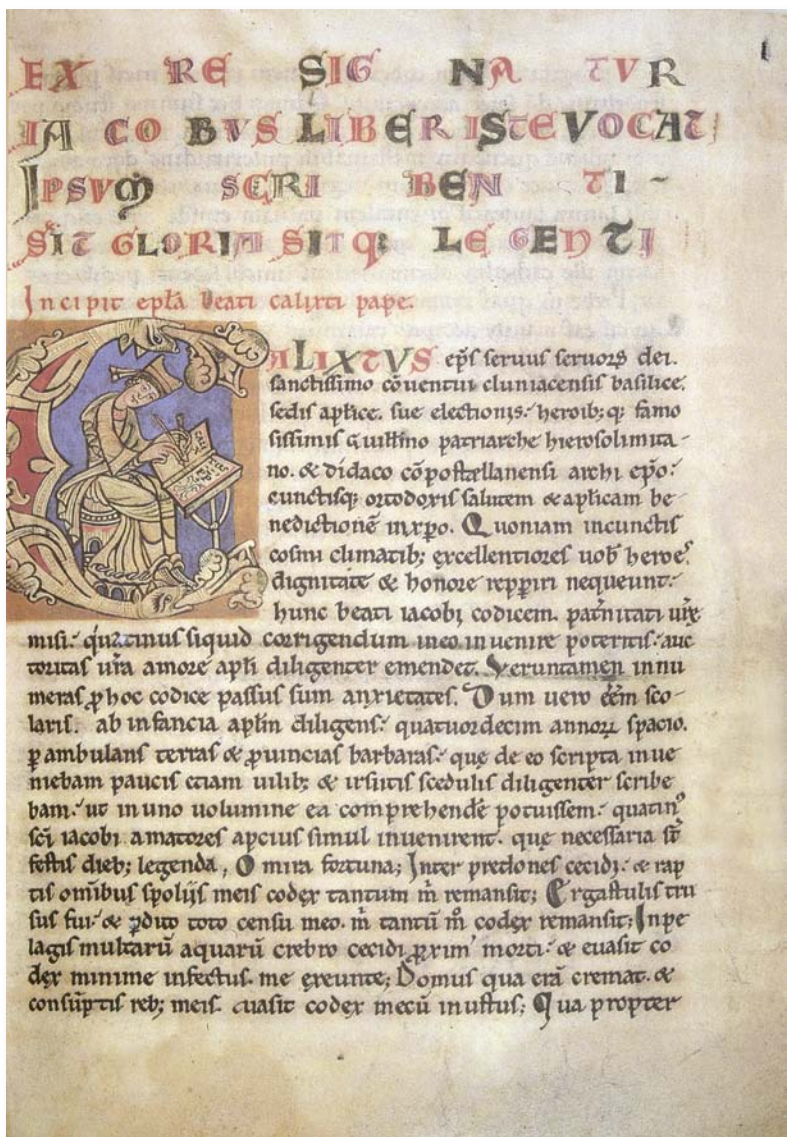 I
EX RE SIG NA TVR
IA CO BVS LIBER ISTE VOCAT
IPSVM SCRI BEN TI -
SIT GLORIA SITQ: LE GENTI
Incipit epła beati calixti pape.
CALIXTVS ep̃s seruus seruoꝝ dei.
sanctissimo cõuentui cluniacensis basilice.
sedis aplice. sue electionis. heroib; q; famo
sissimis Guilłmo patriarche hierosolimita-
no. & didaco cõpostellanensi archi ep̃o.
cunctisq; ortodoxis salutem & aplicam be
nedictionẽ inxp̃o. Quoniam incunctis
cosmi climatib; excellentiores uob' heroes
dignitate & honore repperiri nequeunt.
hunc beati iacobi codicem. pat̃nitati ur̃e
misi. quatinus siquid corrigendum ineo inuenire poteritis. auc
toritas ur̃a amore apłi diligenter emendet. Veruntamen innu
meras ꝓ hoc codice passus sum anxietates. Dum uero eẽm sco-
laris. ab infancia apłm diligens. quatuordecim annoꝝ spacio.
ꝑambulans terras & ꝓuincias barbaras. que de eo scripta inue
niebam paucis etiam uilib; & irsutis scedulis diligenter scribe
bam. ut in uno uolumine ea comprehendẽ potuissem. quatin'
sc̃i iacobi amatores apcius simul inuenirent. que necessaria s̃t
festis dieb; legenda, O mira fortuna; Inter predones cecidi. & rap
tis om̃ibus spolijs meis codex tantum m̃ remansit; Ergastulis tru
sus fui. & ꝑdito toto censu meo. m̃ tantũ m̊ codex remansit; Inpe
lagis multarũ aquarũ crebro cecidi ꝓxim' morti. & euasit co
dex minime infectus. me exeunte; Domus qua erã cremat. &
consũptis reb; meis. euasit codex mecũ inustus; Qua propter